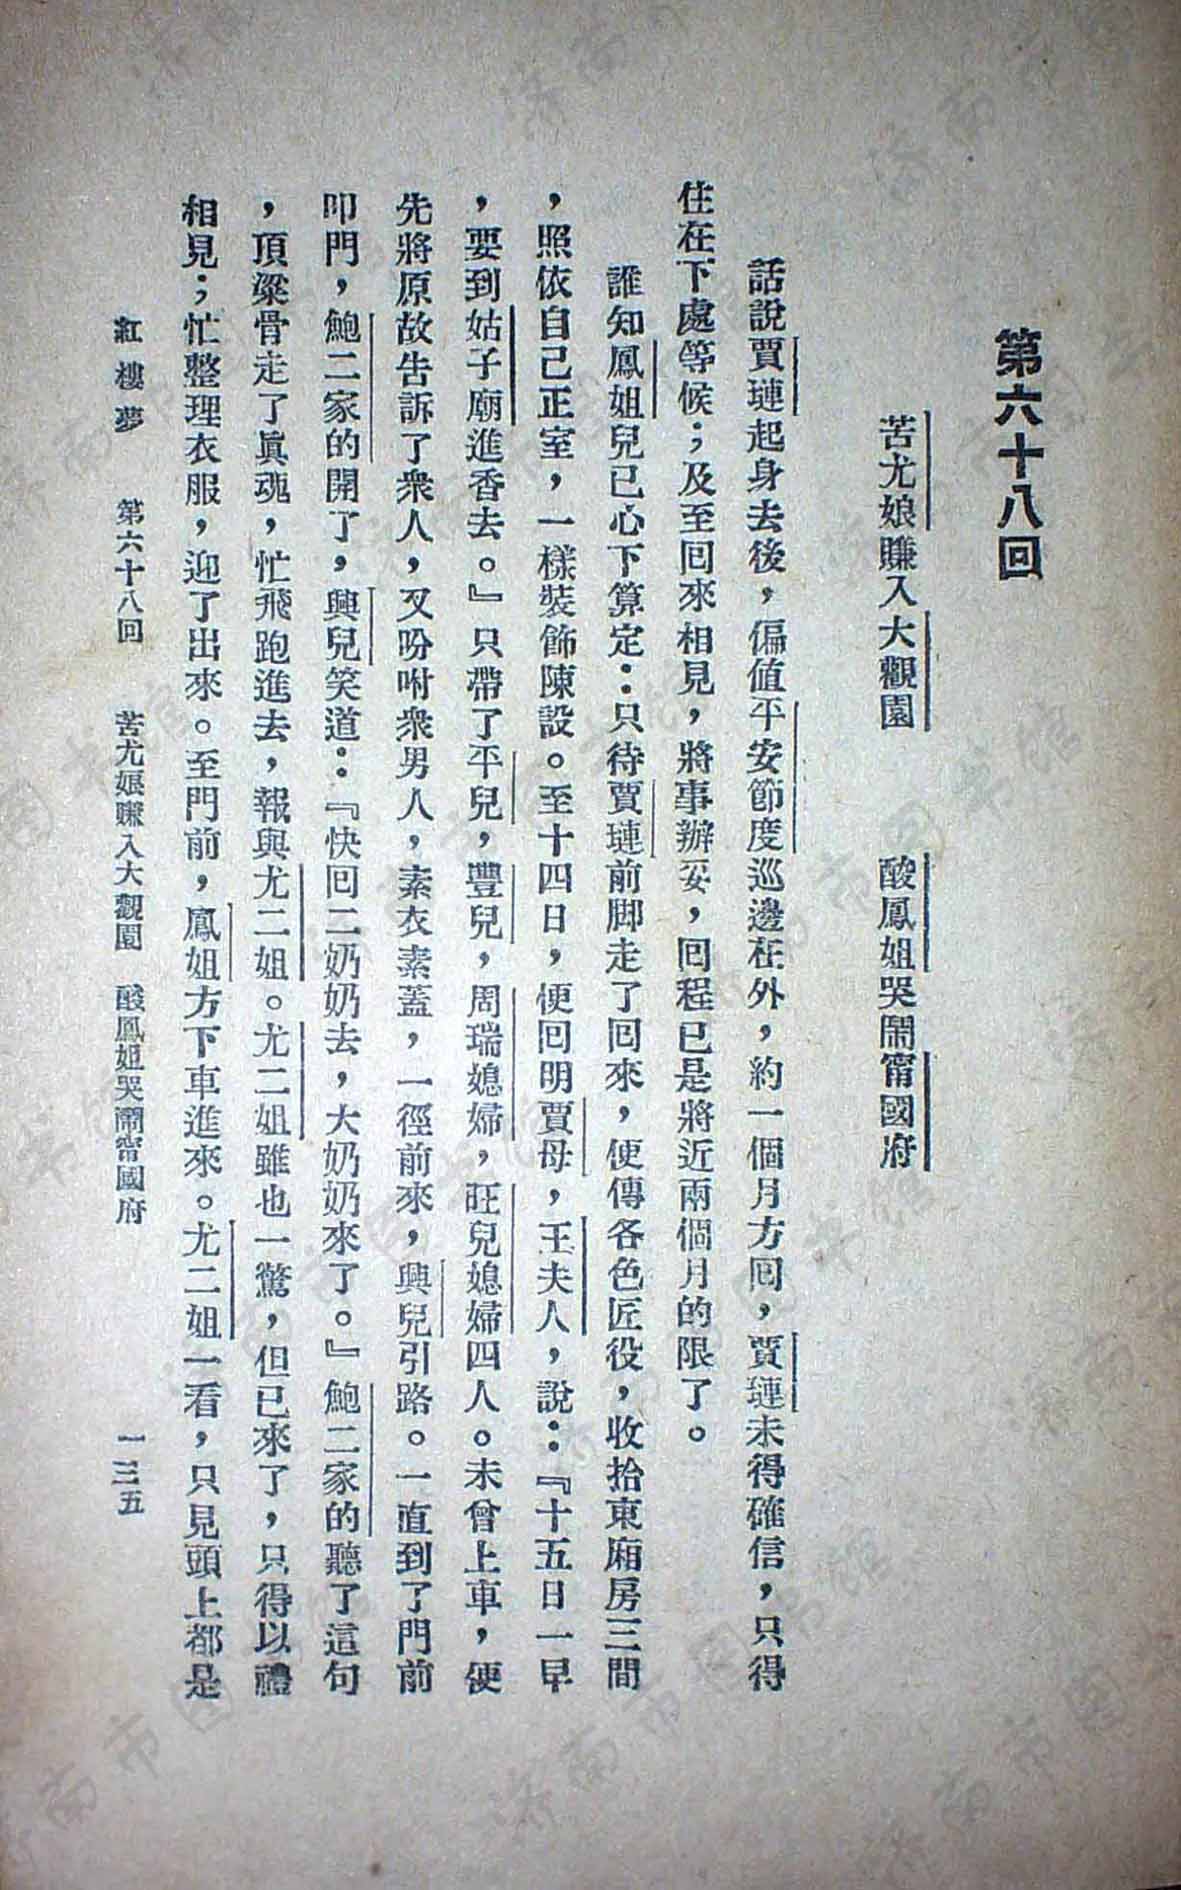 第六十八回
苦尤娘賺入大觀園　酸鳳姐哭鬧甯國府
話說賈璉起身去後，偏值平安節度巡邊在外，約一個月方回，賈璉未得確信，只得
住在下處等候；及至回來相見，將事辦妥，回程已是將近兩個月的限了。
誰知鳳姐兒已心下算定：只待賈璉前脚走了回來，便傳各色匠役，收拾東廂房三間
，照依自己正室，一樣裝飾陳設。至十四日，便回明賈母，王夫人，說：『十五日一早
，要到姑子廟進香去。』只帶了平兒，豐兒，周瑞媳婦，旺兒媳婦四人。未曾上車，便
先將原故告訴了衆人，又吩咐衆男人，素衣素蓋，一徑前來，興兒引路。一直到了門前
叩門，鮑二家的開了，興兒笑道：『快回二奶奶去，大奶奶來了。』鮑二家的聽了這句
，頂梁骨走了眞魂，忙飛跑進去，報與尤二姐。尤二姐雖也一驚，但已來了，只得以禮
相見；忙整理衣服，迎了出來。至門前，鳳姐方下車進來。尤二姐一看，只見頭上都是
紅樓夢　第六十八回　苦尤娘賺入大觀園　酸鳳姐哭鬧甯國府　一三五
济南市图书馆